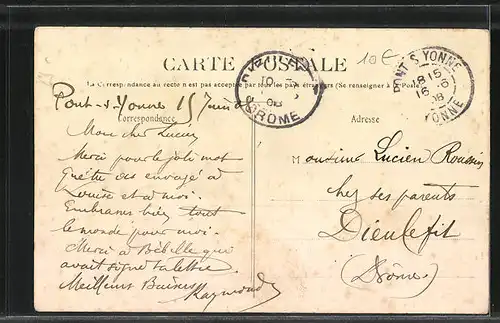 CARTE POSTALE
10€
La Correspondance au recto n'est pas acceptée par tous les pays étrangers (Se renseigner à la Poste)
DROME
08
PONT S. YONNE
1815
16 6
08
YONNE
Pont-s-Yonne 15 Juin 08
Correspondance
Adresse
Mon cher Lucien
Merci pour le joli mot
que tu as envoyé à
Louise et à moi.
Embrasses bien tout
le monde pour moi.
Merci à Bebelle qui
avait signé ta lettre.
Meilleurs Baisers
Raymond
Monsieur Lucien
chez ses parents
Dieulefit
(Drôme)